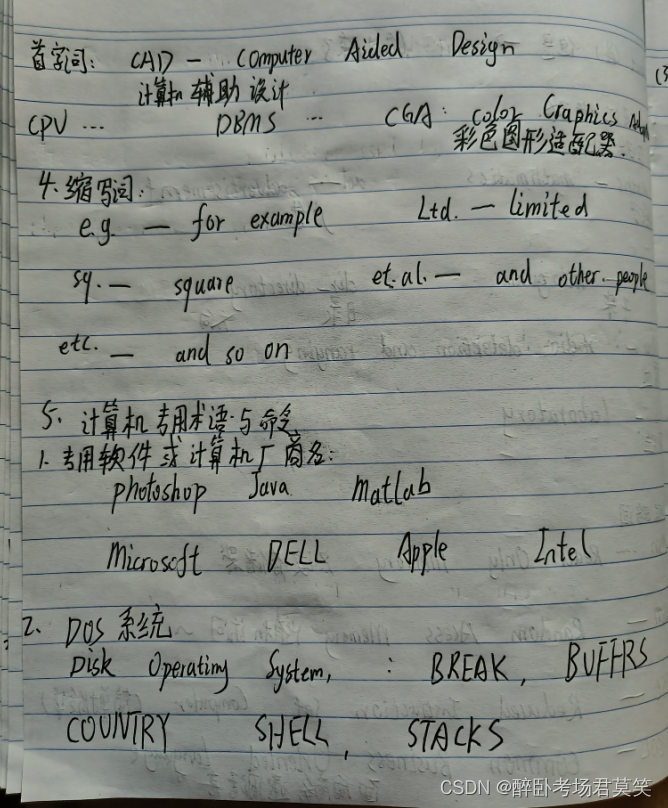 首字词: CAD - Computer Aided Design
计算机辅助设计
CPU ... DBMS ... CGA: Color Graphics
彩色图形适配器.
4. 缩写词:
e.g. — for example Ltd. — limited
sq. — square et.al. — and other people
etc. — and so on
5. 计算机专用术语与命令
1. 专用软件或计算机厂商名:
photoshop Java Matlab
Microsoft DELL Apple Intel
2. DOS 系统
Disk Operating System, : BREAK, BUFFRS
COUNTRY SHELL, STACKS
CSDN @醉卧考场君莫笑